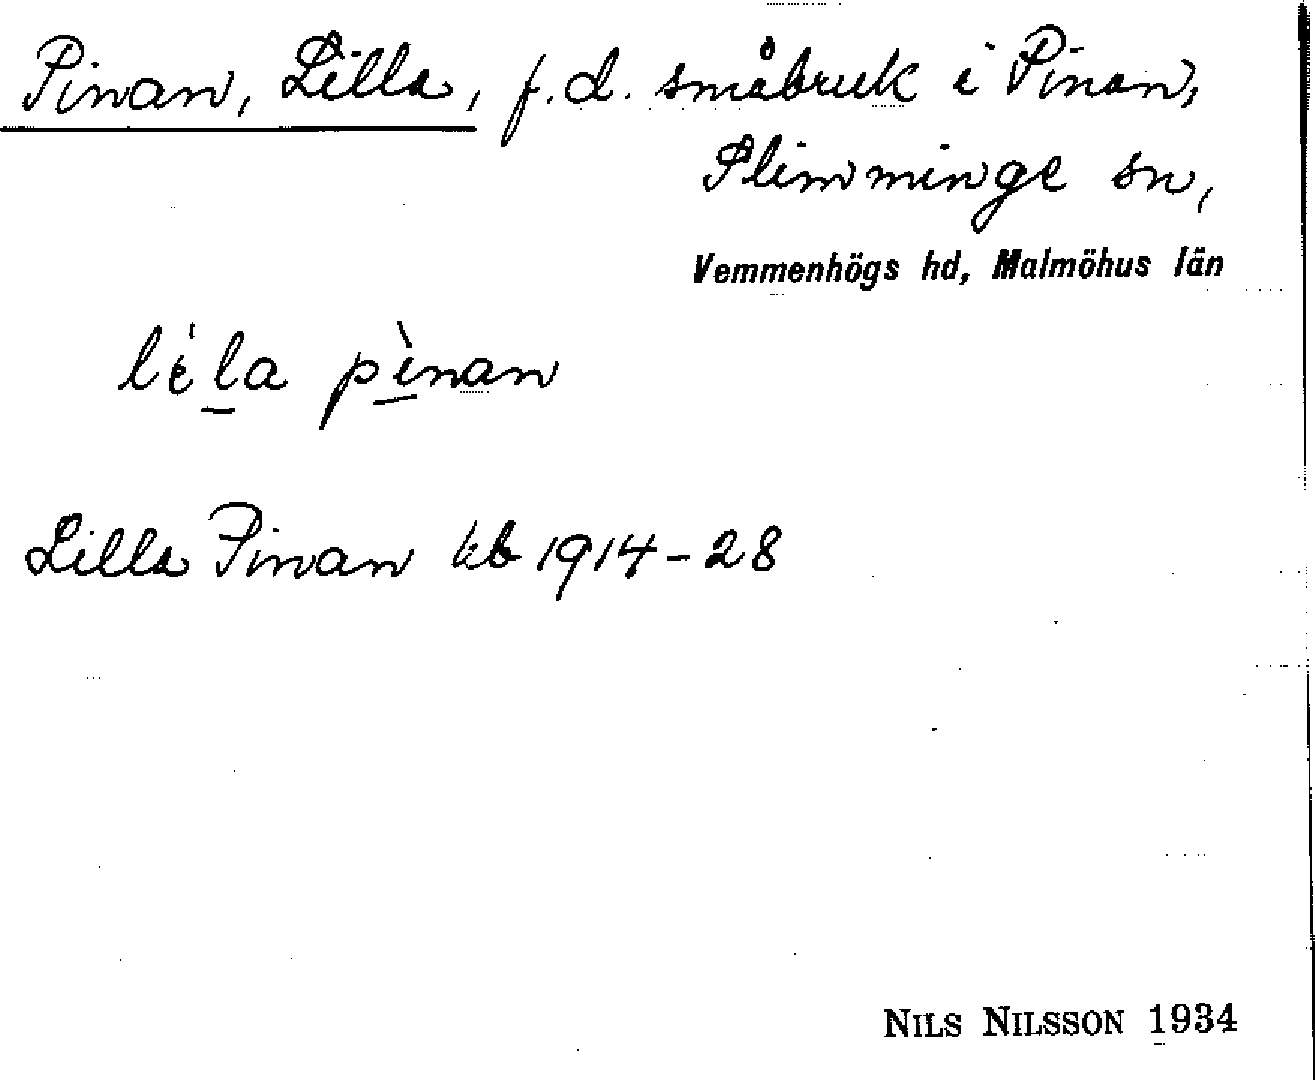 Pinan, Lilla, f.d. småbruk i Pinan,
Slimminge sn,
Vemmenhögs hd, Malmöhus län
lela pìnan
Lilla Pinan kb 1914-28
NILS NILSSON 1934